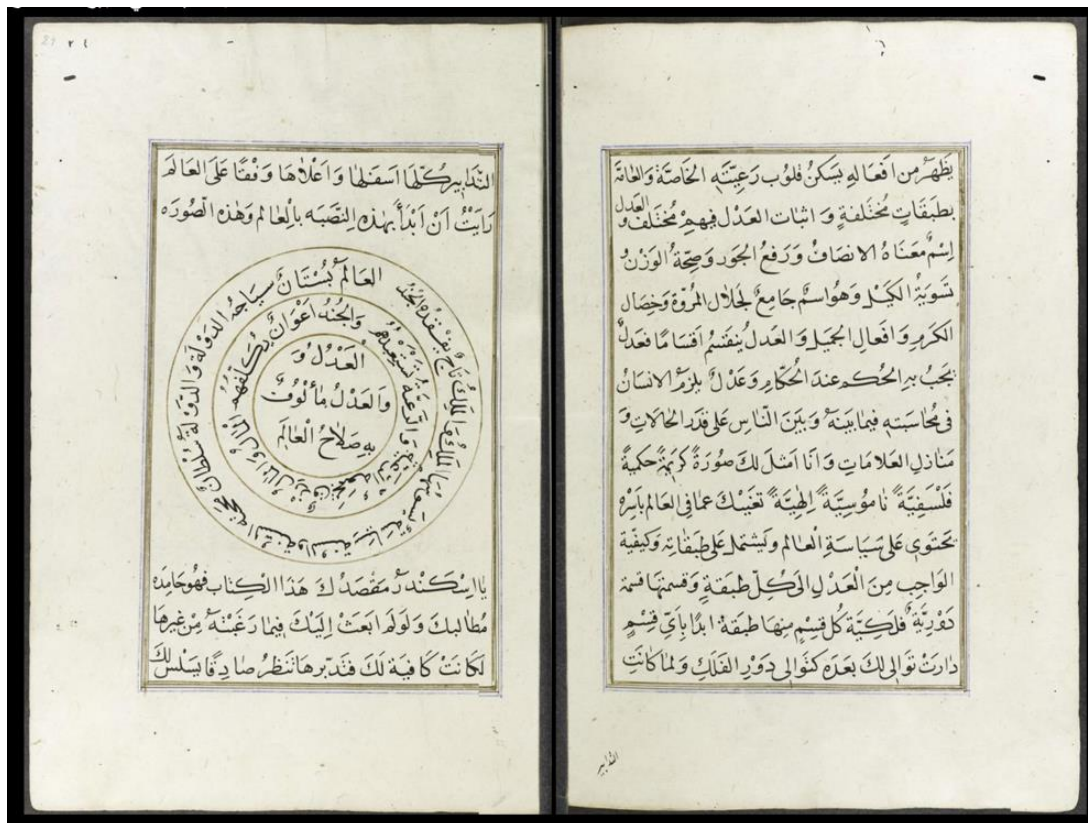 يظهر من افعاله يسكن قلوب رعيّته الخاصّة والعامّة
بطبقات مختلفة و اثبات العدل فيهم مختلف والعدل
اسم معناه الانصاف ورفع الجور وصحّة الوزن و
تسوية الكيل وهو اسم جامع لخلال المروّة وخصال
الكرم وافعال الجميل والعدل ينقسم اقساما فعدل
يجب به الحكم عند الحكام وعدل يلزم الانسان
فى محاسبته فيما بينه وبين النّاس على قدر الحالات و
منازل العلامات وانا امثل لك صورة كريمة حكمية
فلسفيّة ناموسيّة الهيّة تغنيك عما فى العالم باسره
يحتوى على سياسة العالم ويشتمل على طبقاته وكيفية
الواجب من العدل الى كلّ طبقة وقسمتها قسمة
دوريّة فلكيّة كل قسم منها طبقة ابدًا باىّ قسم
دارت توالى لك بعده كتوالى دور الفلك ولما كانت
التدابير
٢٤
24
التدابير كلّها اسفلها واعلاها وفقا على العالم
رايت ان ابدأ بهذه النصبه بالعالم وهذه الصوره
العالم بستان سياجه الدولة والدولة سلطان تحجبه السنة والسنة سياسة يسوسها الملك والملك يعضده الجند
والجند اعوان يكلفهم المال والمال رزق تجمعه الرعية والرعية
العدل و
والعدل مألوف
به صلاح العالم
يا اسكندر مقصدك هذا الكتاب فهو
مطالبك ولو لم ابعث اليك فيما رغبته من غيرها
لكانت كافية لك فتدبرها تنظر صادقا يسلس لك